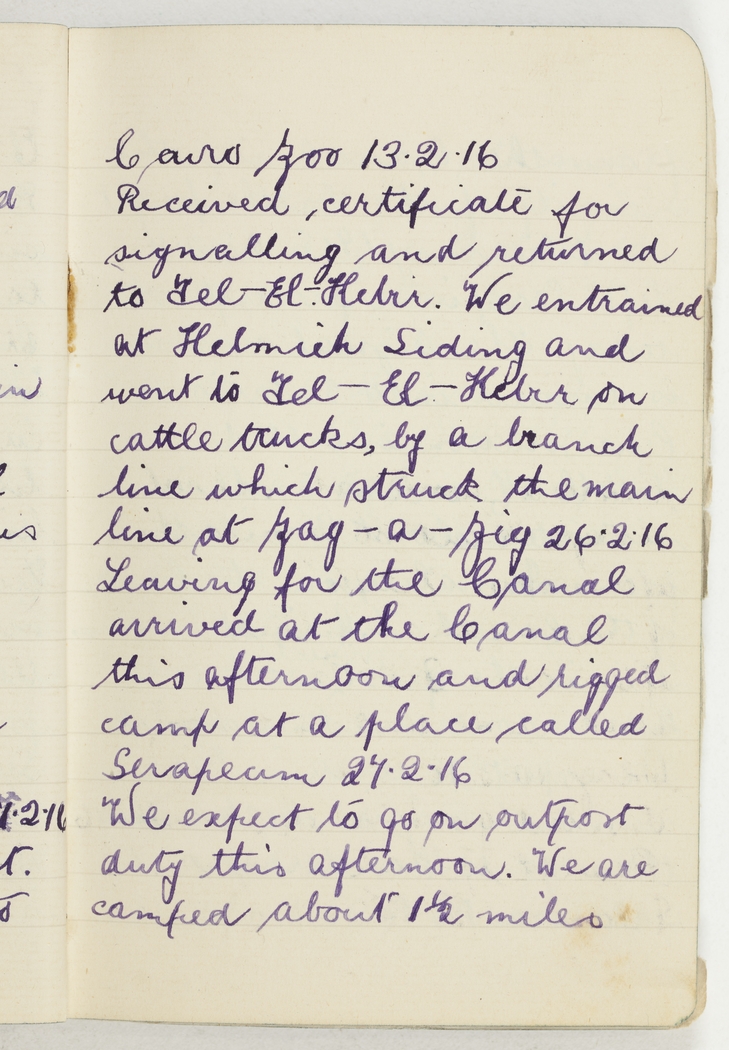 Cairo Zoo 13.2.16
Received certificate for
signalling and returned
to Tel-El-Hebir. We entrained
at Helmieh Siding and
went to Tel-El-Hebir on
cattle trucks, by a branch
line which struck the main
line at Zag-a-Zig 26.2.16
Leaving for the Canal
arrived at the Canal
this afternoon and rigged
camp at a place called
Serapeum 27.2.16
We expect to go on outpost
duty this afternoon. We are
camped about 1½ miles